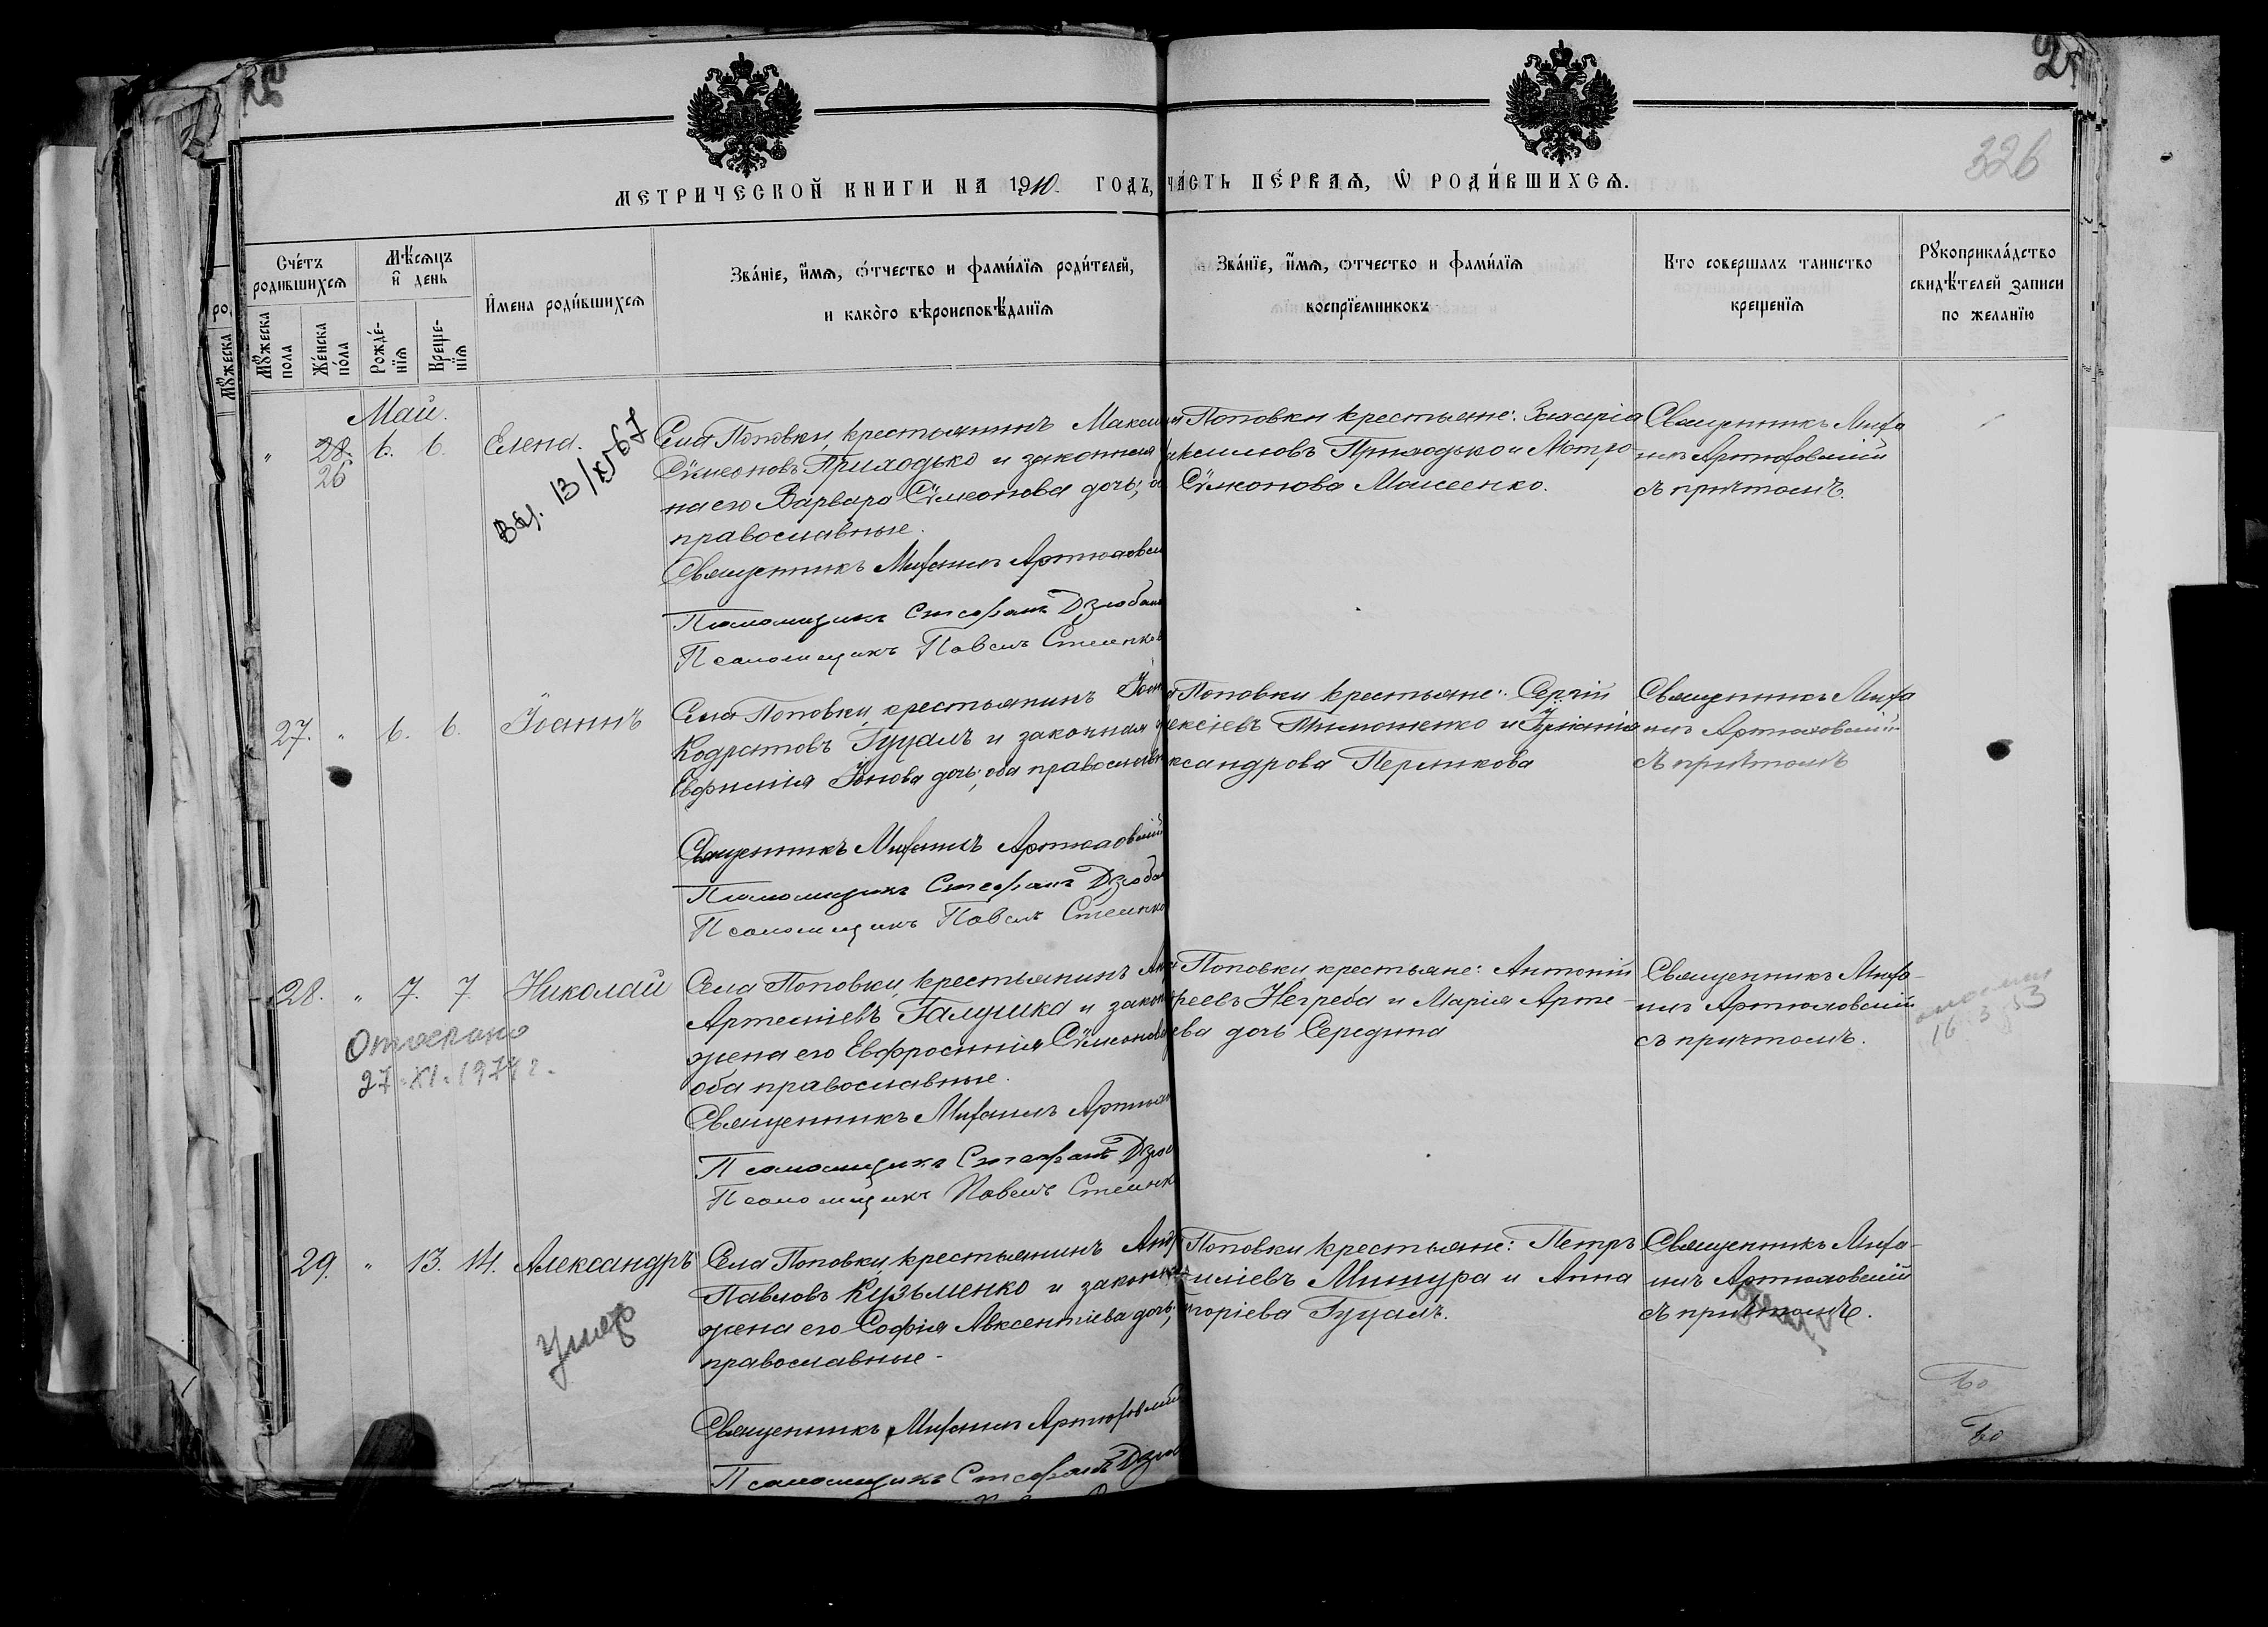 326
МЕТРИЧЕСКОЙ КНИГИ НА 1910 ГОДЪ, ЧА́СТЬ ПЕ́РВАѦ, Ѿ РОДИ́ВШИХСѦ.
Сче́тъ родившихсѧ
Мꙋ́жеска пола
Же́нска по́ла
Мѣ́сѧцъ и҆ день
Рожде́-нїѧ
Креще-нїѧ
И҆мена роди́вшихсѧ
Зва́нїе, и҆́мѧ, ѻ҆́тчество и фами́лїѧ роди́телей,
и како̀го вѣроисповѣ́данїѧ
Зва́нїе, и҆́мѧ, ѻтчество и фами́лїѧ
воспрїемниковъ
Кто совершалъ таинство
крещенїѧ
Рꙋкоприкла́дство
свидѣ́телей записи
по желанїю
Май.
" 28. 6. 6. Елена.
26
13/XI 67
Села Поповки, крестьянинъ Макси
Сѵмеоновъ Приходько и законная
на его Варвара Сѵмеонова дочь, о
православные.
Священникъ Михаилъ Артюховск
Псаломщикъ Стефанъ Дзюбан
Псаломщикъ Павелъ Стеенко
Поповки крестьяне: Захарія
ксимовъ Приходько и Мотро
Сѵмеонова Моисеенко.
Священникъ Миха
илъ Артюховскій
съ причтомъ.
27. " 6. 6. Іоаннъ
Села Поповки, крестьянинъ Іоан
Кодратовъ Гуцалъ и законная
Евфимія Іонова дочь; оба православн
Священникъ Михаилъ Артюховскій
Псаломщикъ Стефанъ Дзюба
Псаломщикъ Павелъ Стеенко
Поповки крестьяне: Сергій
ексіевъ Тимошенко и
ксандрова Перликова
Священникъ Миха
илъ Артюховскій
съ причтомъ
28. " 7. 7 Николай
Отослано
27. XI. 1974 г.
Села Поповки, крестьянинъ
Артеміевъ Галушка и закон
жена его Евфросинія Сѵмеонова
оба православные.
Священникъ Михаилъ Артюх
Псаломщикъ Стефанъ Дзю
Псаломщикъ Павелъ Стеенк
Поповки крестьяне: Антоній
реевъ Негреба и Марія Арте-
ева дочь Середина
Священникъ Миха-
илъ Артюховскій
съ причтомъ.
16.3.53
29. " 13. 14. Александръ
умер
Села Поповки, крестьянинъ Анд
Павловъ Кузьменко и законна
жена его Софія Авксентіева дочь,
православные.
Священникъ Михаилъ Артюховскій
Псаломщикъ Стефанъ Дзюб
Поповки крестьяне: Петръ
силіевъ Мишура и Анна
горіева Гуцалъ.
Священникъ Миха-
илъ Артюховскій
съ причтомъ.